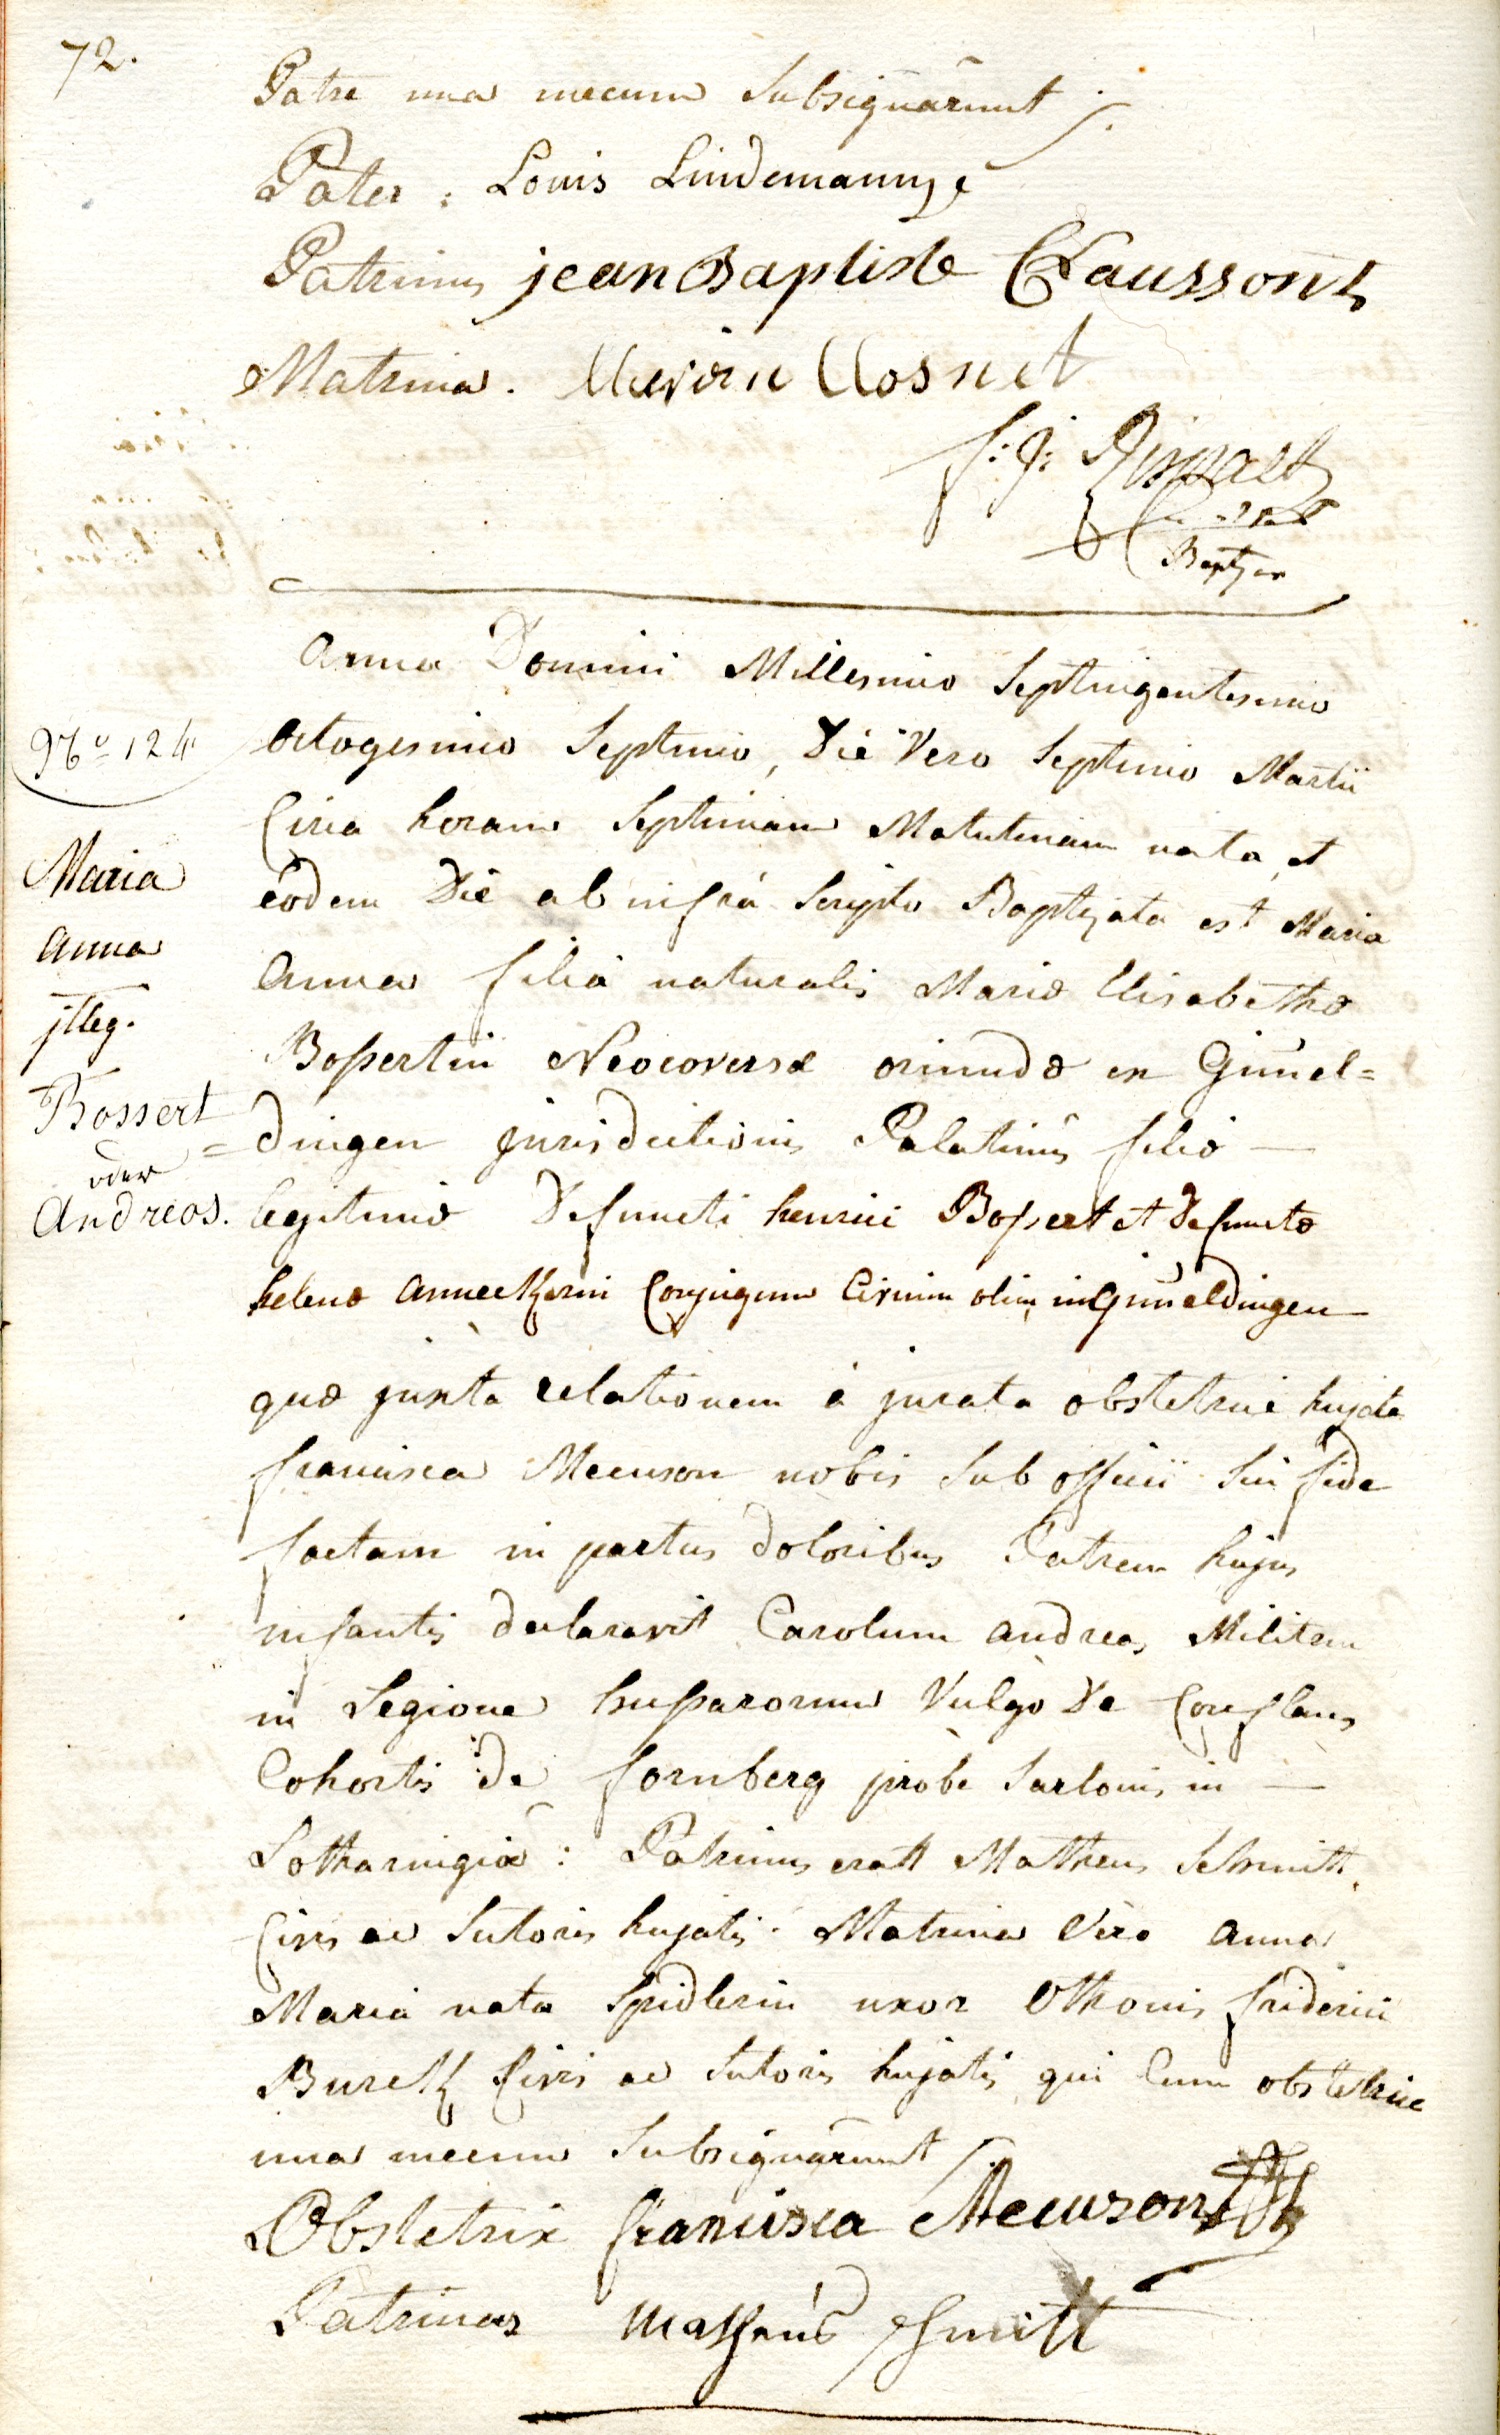 72.
Patre una mecum Subsignârunt
Pater : Louis Lindemann
Patrinus jean Baptiste Claussont
Matrina. Closnet
f: J:
Baptzav
Anno Domini Millesimo Septingentesimo
No 124
octogesimo Septimo, Die Vero Septimo Martii
Circa horam Septimam Matutinam nata, et
Maria
eodem Die ab infrà Scripto Baptizata est Maria
anna
Anna filia naturalis Mariæ Elisabethæ
jlleg.
Boßertin Neocoversæ oriundæ ex Gimel=
Bossert
=dingen jurisdictionis Palatinus filiæ —
oder
Andreas.
legitimæ Defuncti henrici Boßert et Defunctæ
helenæ Conjugum Civium olim in Gimeldingen
quæ juxta relationem à jurata obstetrice hujate
francisca Mecuson nobis Sub officii Sui fide
factam in partus doloribus Patrem hujus
infantis declaravit Carolum andreas Militem
in Legione hußarorum Vulgo De Conflans
Cohortis de fornberg probe Sarlouis in —
Lotharingiæ : Patrinus eratt Matheus Schmitt
Civis ac Sutoris hujatis. Matrina Vero anna
Maria nata Spidlerin uxor Othonis friderici
Burck Civis ac Sutoris hujatis qui Cum obstetrice
una mecum Subsignârunt
Obstetrix francisca Mecuson
Patrinus Matheus Schmitt